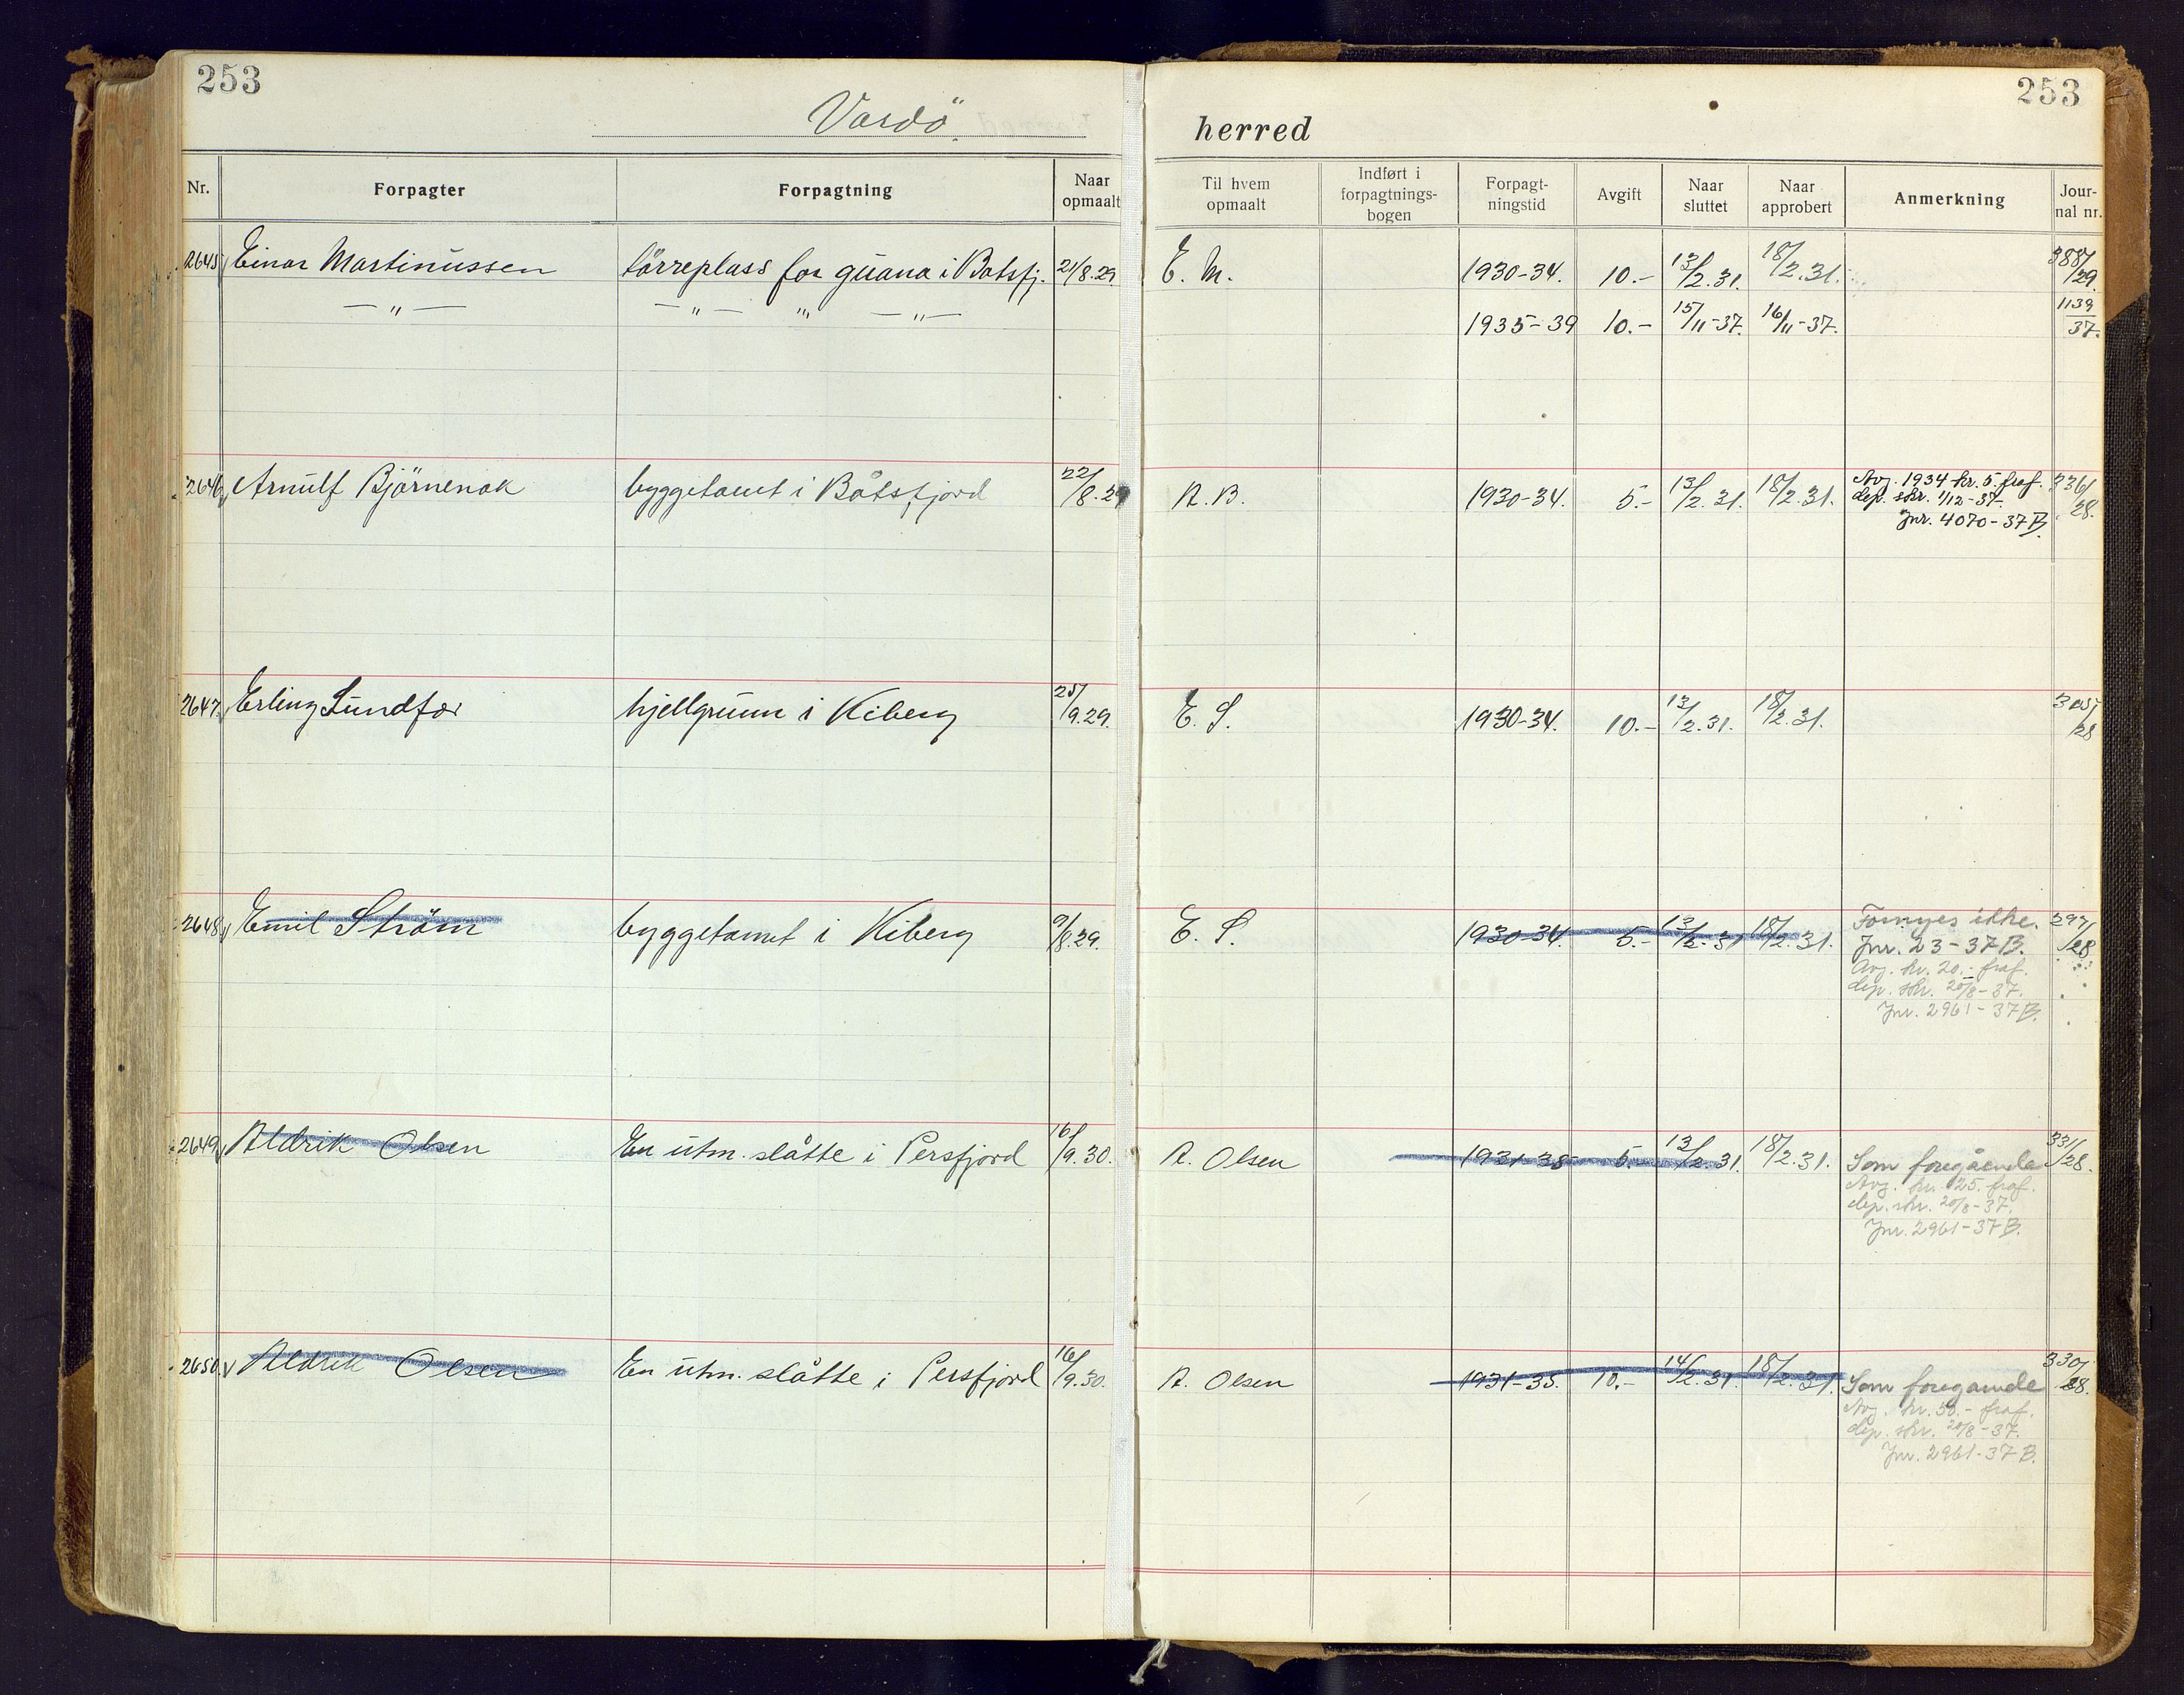 253
Vardö
herred
253
Nr.
Forpagter
Forpagtning
Naar opmaalt
Til hvem opmaalt
Indført i forpagtnings-bogen
Forpagt-ningstid
Avgift
Naar sluttet
Naar approbert
Anmerkning
Jour-nal nr.
2645 Einar Martinussen törreplass for guana i Batsfj. 21/8.29 E. M. 1930-34. 10.- 13/2.31. 18/2.31. 388/29.
—"— —"— "' —"— 1935-39 10.- 15/11-37. 16/11-37. 1139/37.
2646 Arnulf Björnenak byggetomt i Båtsfjord 22/8.29 A. B. 1930-34. 5.- 13/2.31. 18/2.31. Avg. 1934 kr. 5. fraf. 336/28.
dep. skr. 1/12-37.
Jnr. 4070-37 B.
2647 Erling Lundfor hjellgrunn i Kiberg 25/9.29. E. S. 1930-34. 10.- 13/2.31. 18/2.31. /28
2648 Emil Ström byggetomt i Kiberg 9/8.29. E. S. 1930-34. 5.- 13/2.31 18/2.31. Fornyes ikke. 297/28
Jnr. 23-37 B.
Avg. kr. 20.- fraf.
dep. skr. 20/8-37.
Jnr. 2961-37 B.
2649 Aldrik Olsen En utm. slåtte i Persfjord 16/9.30. A. Olsen 1931-35 5.- 13/2.31. 18/2.31. Som foregående 331/28.
Avg. kr. 25. fraf.
dep. skr. 20/8-37.
Jnr. 2961-37 B.
2650 Aldrik Olsen En utm. slåtte i Persfjord 16/9.30. A. Olsen 1931-35. 10.- 14/2.31. 18/2.31. Som foregående 330/28.
Avg. kr. 50.- fraf.
dep. skr. 20/8-37.
Jnr. 2961-37 B.